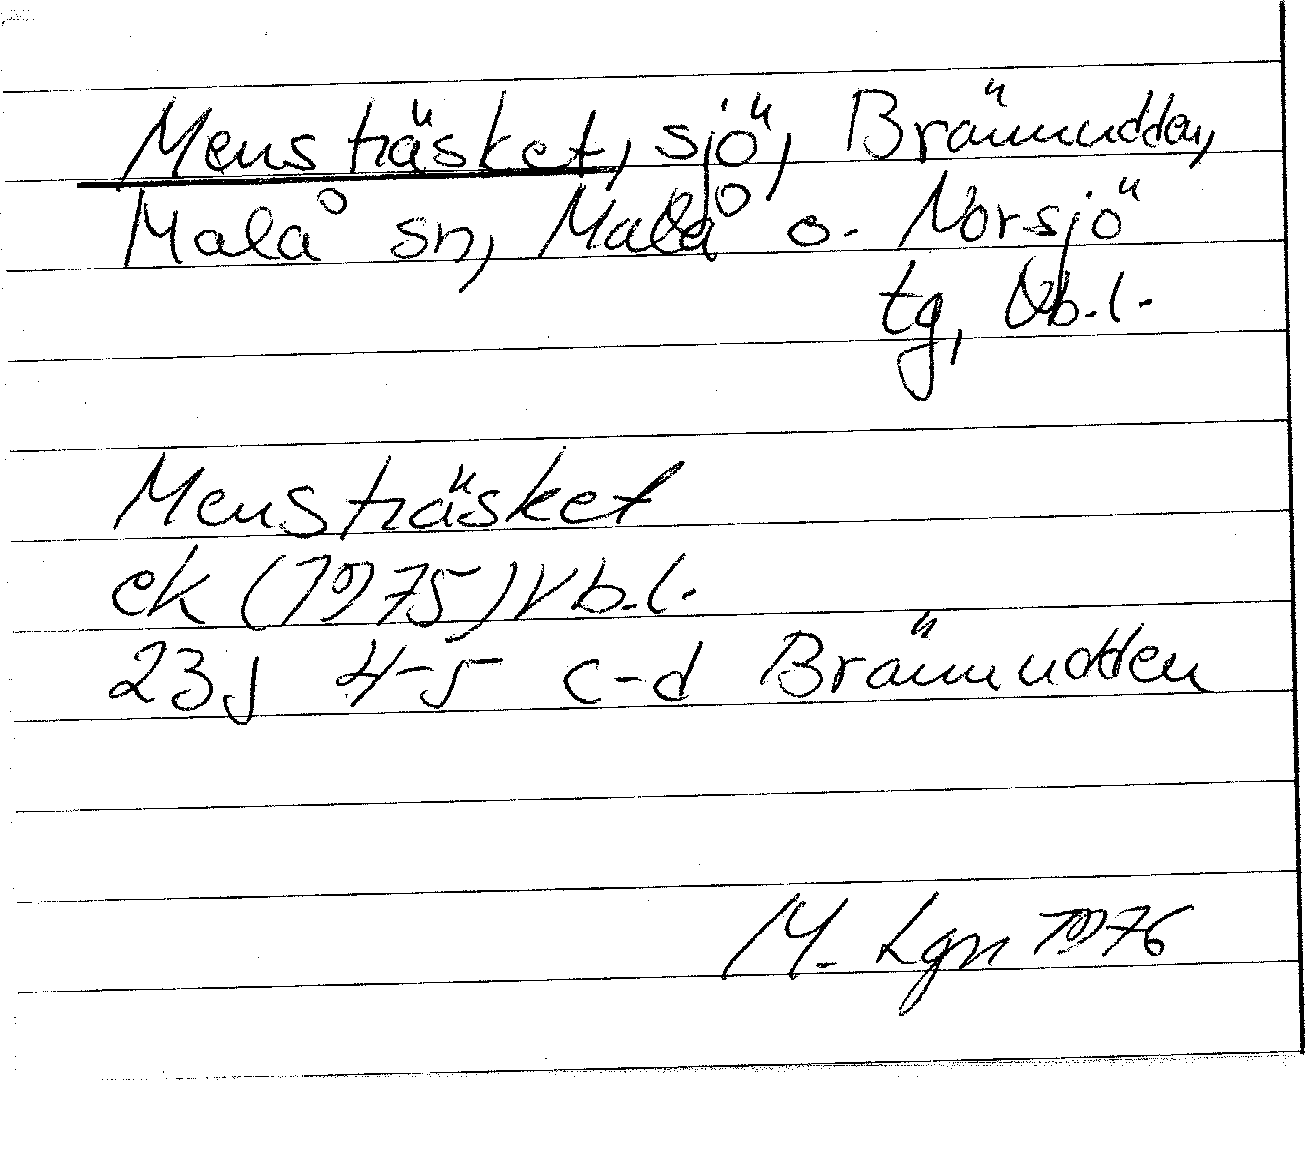 Mensträsket, sjö, Brännudden,
Malå sn, Malå o. Norsjö
tg, Vb.l.
Mensträsket
ek (1975) Vb.l.
23J 4-5 c-d Brännudden
M. Lgn 1976